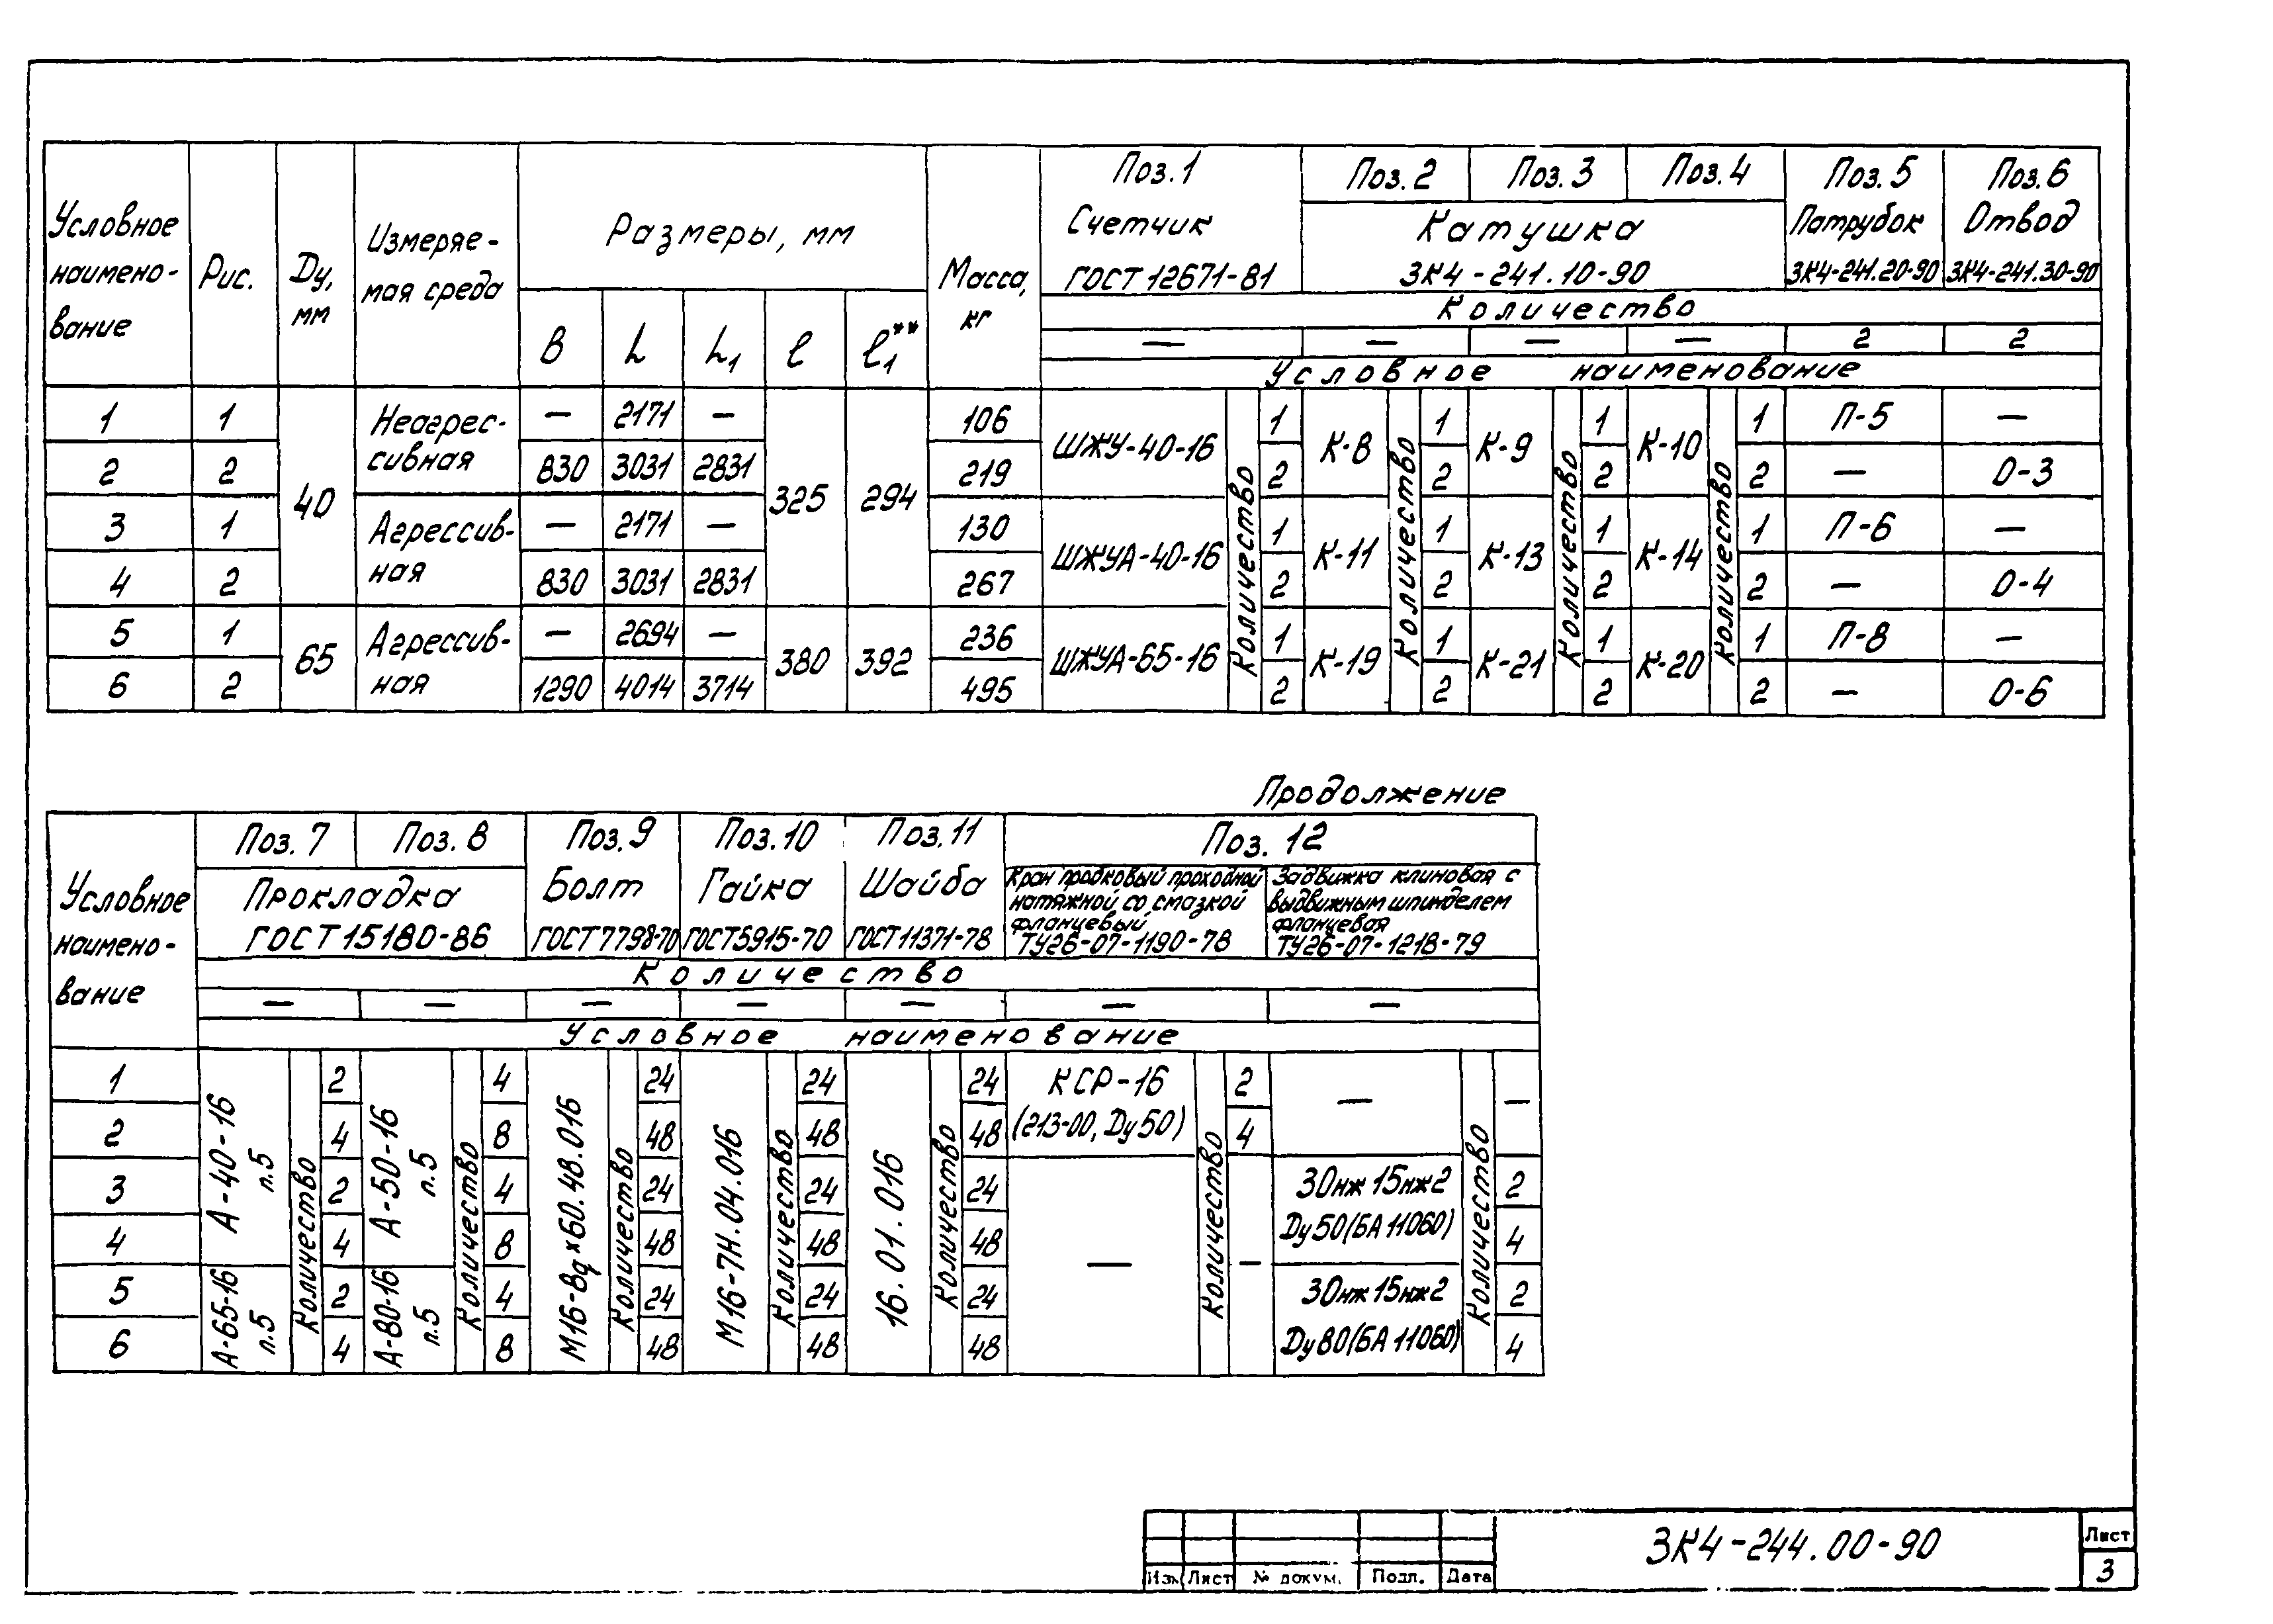 Условное наимено- вание | Рис. | Ду, мм | Измеряе- мая среда | Размеры, мм | Масса, кг | Поз.1 Счетчик ГОСТ 12671-81 | Поз.2 | Поз.3 | Поз.4 | Поз.5 Патрубок ЗК4-241.20-90 | Поз.6 Отвод ЗК4-241.30-90
Катушка ЗК4-241.10-90
B | L | L₁ | ℓ | ℓ₁**
Количество
— | — | — | — | 2 | 2
Условное наименование
1 | 1 | 40 | Неагрес- сивная | — | 2171 | — | 325 | 294 | 106 | ШЖУ-40-16 | Количество | 1 | К-8 | Количество | 1 | К-9 | Количество | 1 | К-10 | Количество | 1 | П-5 | —
2 | 2 | 830 | 3031 | 2831 | 219 | 2 | 2 | 2 | 2 | — | О-3
3 | 1 | Агрессив- ная | — | 2171 | — | 130 | ШЖУА-40-16 | 1 | К-11 | 1 | К-13 | 1 | К-14 | 1 | П-6 | —
4 | 2 | 830 | 3031 | 2831 | 267 | 2 | 2 | 2 | 2 | — | О-4
5 | 1 | 65 | Агрессив- ная | — | 2694 | — | 380 | 392 | 236 | ШЖУА-65-16 | 1 | К-19 | 1 | К-21 | 1 | К-20 | 1 | П-8 | —
6 | 2 | 1290 | 4014 | 3714 | 495 | 2 | 2 | 2 | 2 | — | О-6
Продолжение
Условное наимено- вание | Поз.7 | Поз.8 | Поз.9 Болт ГОСТ7798-70 | Поз.10 Гайка ГОСТ5915-70 | Поз.11 Шайба ГОСТ11371-78 | Поз.12
Прокладка ГОСТ15180-86 | Кран пробковый проходной натяжной со смазкой фланцевый ТУ26-07-1190-78 | Задвижка клиновая с выдвижным шпинделем фланцевая ТУ26-07-1218-79
Количество
— | — | — | — | — | — | —
Условное наименование
1 | А-40-16 п.5 | Количество | 2 | А-50-16 п.5 | Количество | 4 | М16-8g×60.48.016 | Количество | 24 | М16-7Н.04.016 | Количество | 24 | 16.01.016 | Количество | 24 | КСР-16 (213-00, Ду50) | Количество | 2 | — | Количество | —
2 | 4 | 8 | 48 | 48 | 48 | 4
3 | 2 | 4 | 24 | 24 | 24 | — | — | 30нж15нж2 Ду50(БА11060) | 2
4 | 4 | 8 | 48 | 48 | 48 | 4
5 | А-65-16 п.5 | 2 | А-80-16 п.5 | 4 | 24 | 24 | 24 | 30нж15нж2 Ду80(БА11060) | 2
6 | 4 | 8 | 48 | 48 | 48 | 4
ЗК4-244.00-90
Лист
3
Изм | Лист | № докум. | Подп. | Дата